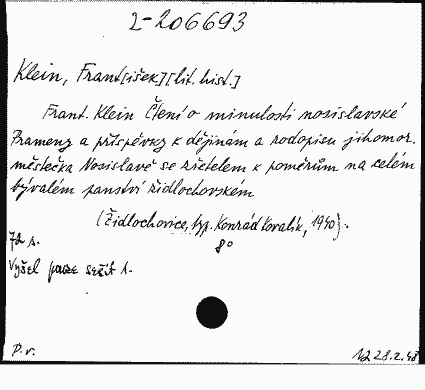 2-206693
Klein, Frant[išek][lit. hist.]
Frant. Klein Čtení o minulosti nosislavské
Prameny a příspěvky k dějinám a rodopisu jihomor.
městečka Nosislavě se zřetelem k poměrům na celém
bývalém panství židlochovském
(Židlochovice, typ. Konrád Kovalík, 1940).
72 s. 8°
Vyšel pouze sešit 1.
P.v. 12 28.2.48